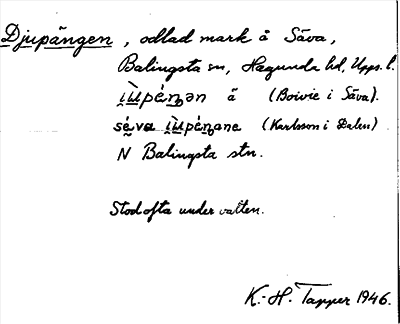 Djupängen, odlad mark å Säva,
Balingsta sn, Hagunda hd, Upps. l.
i̯ùpéŋən ä (Boivie i Säva).
séva i̯ùpéŋəne (Karlsson i Dalen)
N Balingsta stn.
Stod ofta under vatten.
K.-H. Tapper 1946.